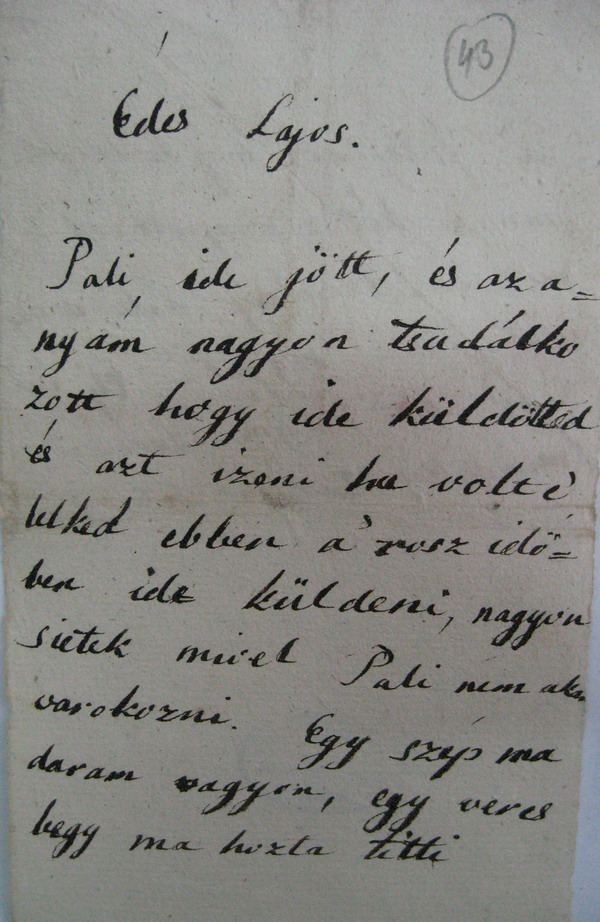 43
Édes Lajos.
Pali, ide jött, és az a=
nyám nagyon tsudálko
zott hogy ide küldötted
és azt izeni volt é
lelked ebben a' rosz idö=
ben ide küldeni, nagyon
sietek mivel Pali nem akar
varokozni. Egy szép ma
daram vagyon, egy veres
begy ma hozta titti